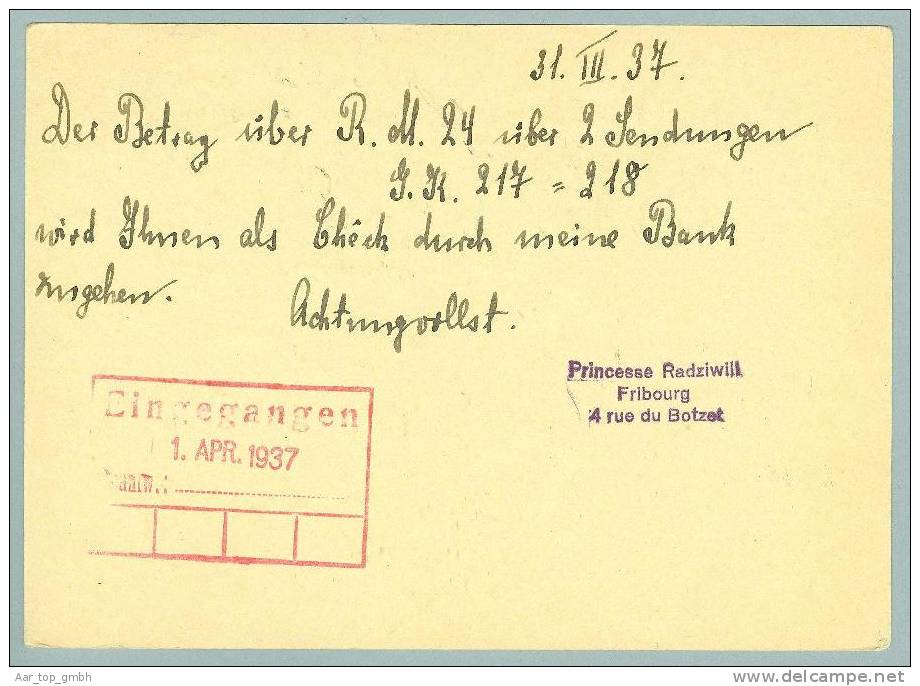 31. III. 37.
Der Betrag über R. M. 24 über 2 Sendungen
G. K. 217 = 218
wird Ihnen als Chéck durch meine Bank
zugehen.
Achtungvollst.
Princesse Radziwill
Fribourg
4 rue du Botzet
Eingegangen
1. APR. 1937
Aar_top_gmbh
delcampe.net